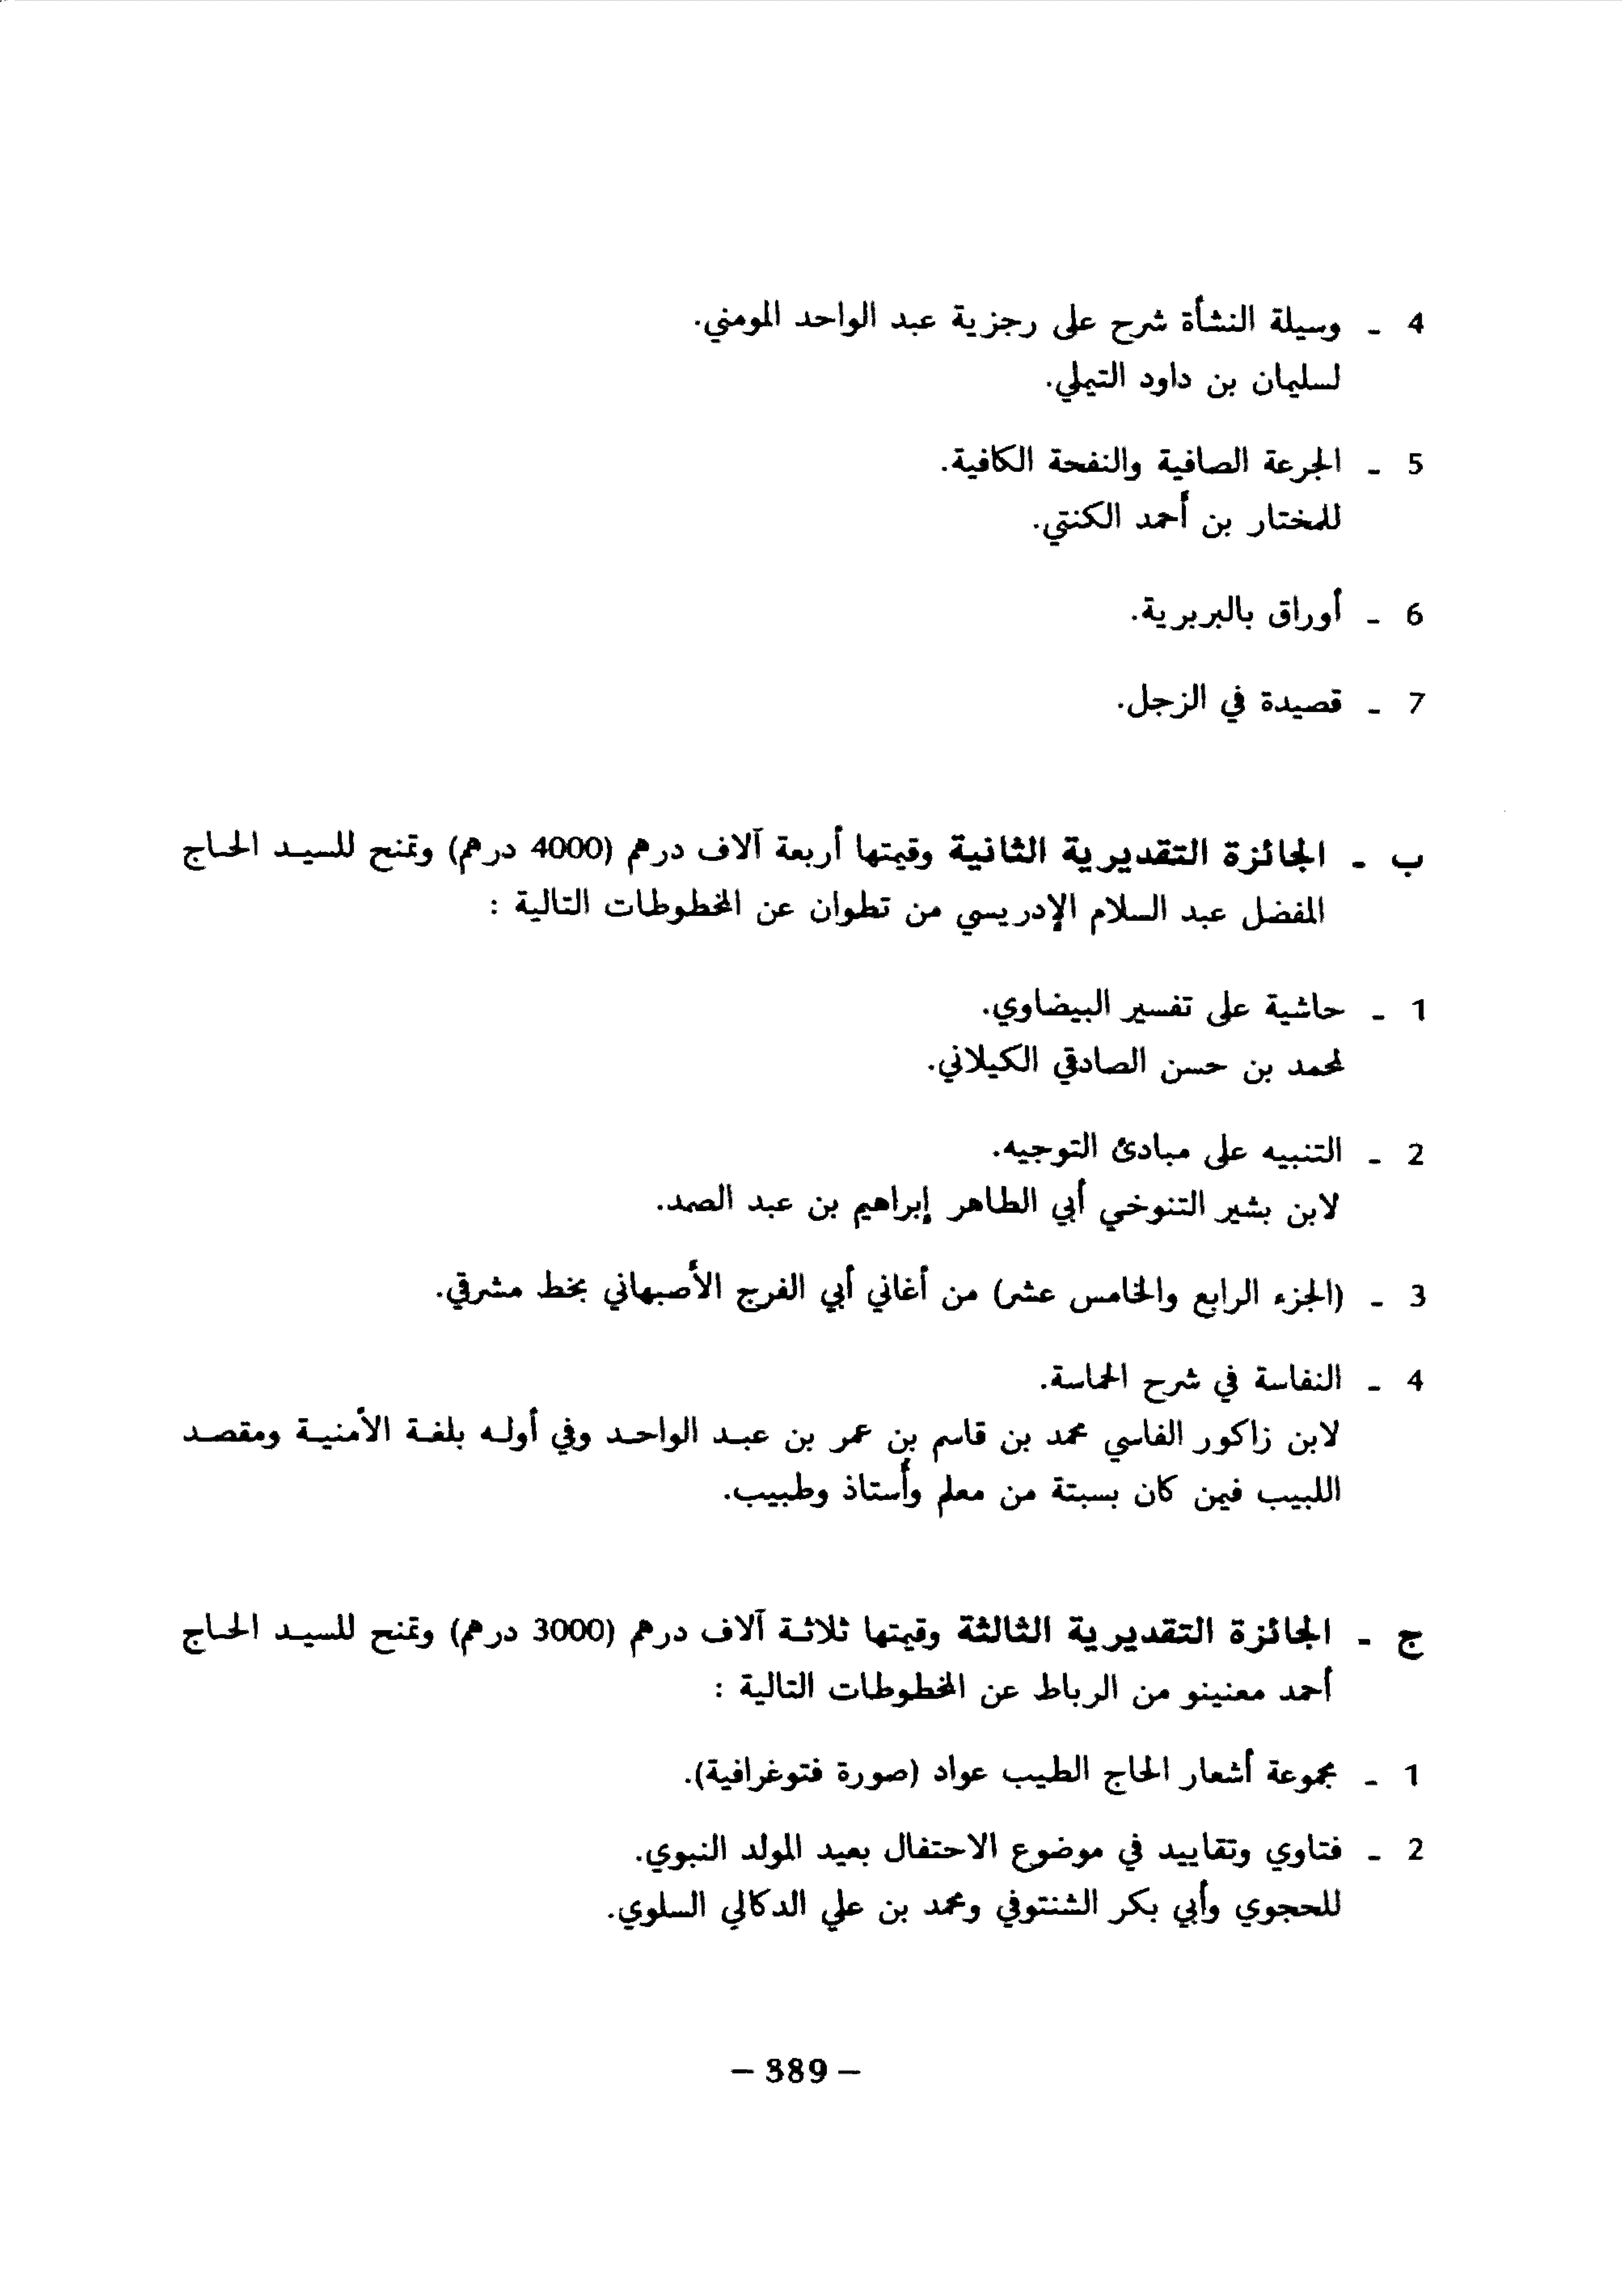 4 ـ وسيلة النشأة شرح على رجزية عبد الواحد المومني.
لسليمان بن داود التيملي.
5 ـ الجرعة الصافية والنفحة الكافية.
للمختار بن أحمد الكنتي.
6 ـ أوراق بالبربرية.
7 ـ قصيدة في الزجل.
ب ـ الجائزة التقديرية الثانية وقيمتها أربعة آلاف درهم (4000 درهم) وتمنح للسيد الحاج
المفضل عبد السلام الإدريسي من تطوان عن المخطوطات التالية :
1 ـ حاشية على تفسير البيضاوي.
لمحمد بن حسن الصادقي الكيلاني.
2 ـ التنبيه على مبادئ التوجيه.
لابن بشير التنوخي أبي الطاهر إبراهيم بن عبد الصمد.
3 ـ (الجزء الرابع والخامس عشر) من أغاني أبي الفرج الأصبهاني بخط مشرقي.
4 ـ النفاسة في شرح الحماسة.
لابن زاكور الفاسي محمد بن قاسم بن عمر بن عبد الواحد وفي أوله بلغة الأمنية ومقصد
اللبيب فيمن كان بسبتة من معلم وأستاذ وطبيب.
ج ـ الجائزة التقديرية الثالثة وقيمتها ثلاثة آلاف درهم (3000 درهم) وتمنح للسيد الحاج
أحمد معنينو من الرباط عن المخطوطات التالية :
1 ـ مجموعة أشعار الحاج الطيب عواد (صورة فتوغرافية).
2 ـ فتاوي وتقاييد في موضوع الاحتفال بعيد المولد النبوي.
للحجوي وأبي بكر الشنتوفي ومحمد بن علي الدكالي السلوي.
– 389 –